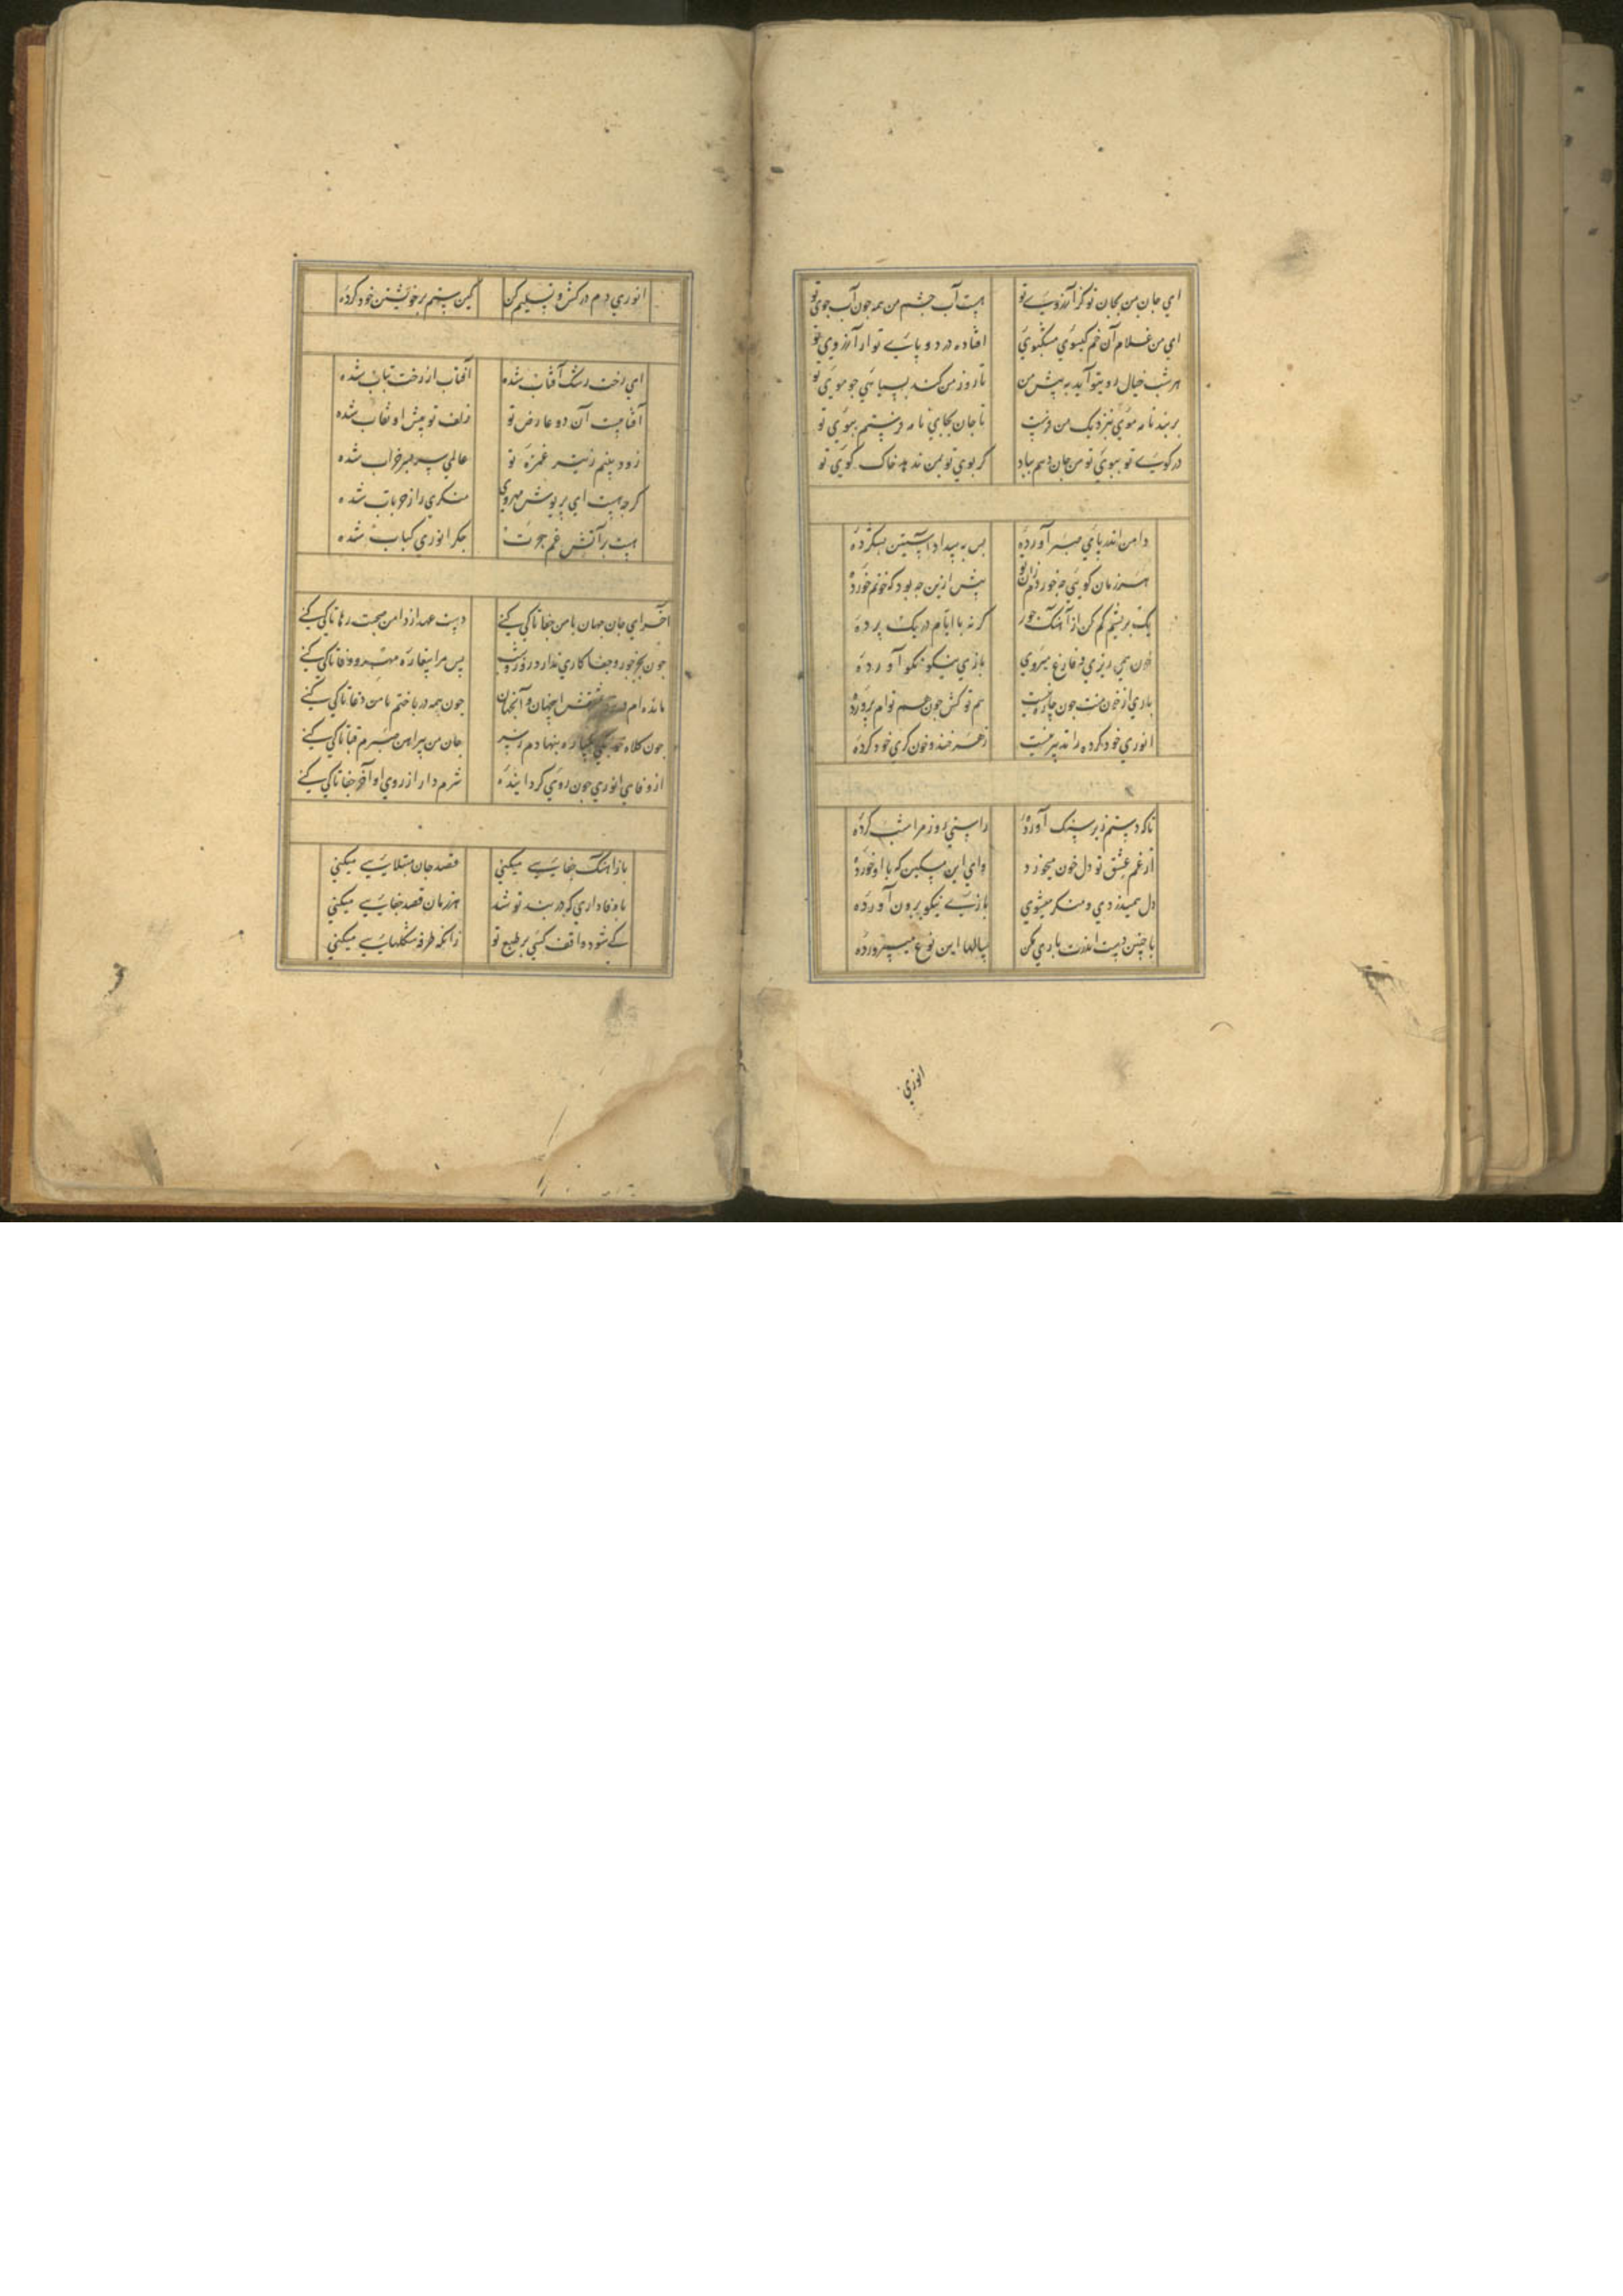 ای جان من بجان تو کز آرزوی تو هست آب چشم من همه چون آب جوی تو
ای من غلام آن خم کیسوی مشکبوی افتاده در دو پای تو از آرزوی تو
هر شب خیال روی تو آید به پیش من تا روز من کند بسیاهی جو موی تو
نزدیک من فرست تا جان بجای نامه فرستم ببوی تو
در کوی تو ببوی تو من جان دهم بباد کر بوی تو بمن ندهد خاک کوی تو
دامن اندر پای صبر آورده بس به بیداد آستین
هر زمان کویی چه خوردم زان تو پیش ازین چه بود که خونم خورده
یک بریشم کم کن از آهنک جور کر نه با ایام در یک پرده
خون همی ریزی و فارغ میروی بازی نیکو نکو آورده
باری از خون منت چون چاره نیست هم تو کش چون هم توام پرورده
انوری خود کرده را تدبیر نیست زهر خند و خون کری خود کرده
تا که دستم زیر سنک آورده راستی روز مرا شب کرده
از غم عشق تو دل خون میخورد وای این مسکین که با او خورده
دل همیدزدی و منکر میشوی بازیی نیکو برون آورده
با چنین دست اندرت یاری مکن سالها این نوع میپرورده
انوری
انوری دم درکش و تسلیم کن کین ستم بر خویشتن خود کرده
ای رخت رشک آفتاب شده آفتاب از رخت بتاب شده
آفتابست آن دو عارض تو زلف تو پیش او نقاب شده
زود بینم ز تیر غمزه تو عالمی سر بسر خراب شده
کرچه هست ای پریوش مهروی
هست بر آتش غم جورت جکر انوری کباب شده
آخر ای جان جهان با من جفا تا کی کنی دست عهد از دامن صحبت رها تا کی کنی
چون بجز جور و جفا کاری نداری روز و شب پس مرا بیغاره مهر و وفا تا کی کنی
مانده ام در اینجهان و آنجهان چون همه درباختم با من دغا تا کی کنی
چون کلاه بنهادم ز سر جان من پیراهن صبرم قبا تا کی کنی
از وفای انوری چون روی کردانیده شرم دار از روی او آخر جفا تا کی کنی
باز آهنک جفایی میکنی قصد جان مبتلایی میکنی
با وفاداری که در بند تو شد هر زمان قصد جفایی میکنی
کی شود واقف کسی بر طبع تو زانکه طرفه مشکلهایی میکنی